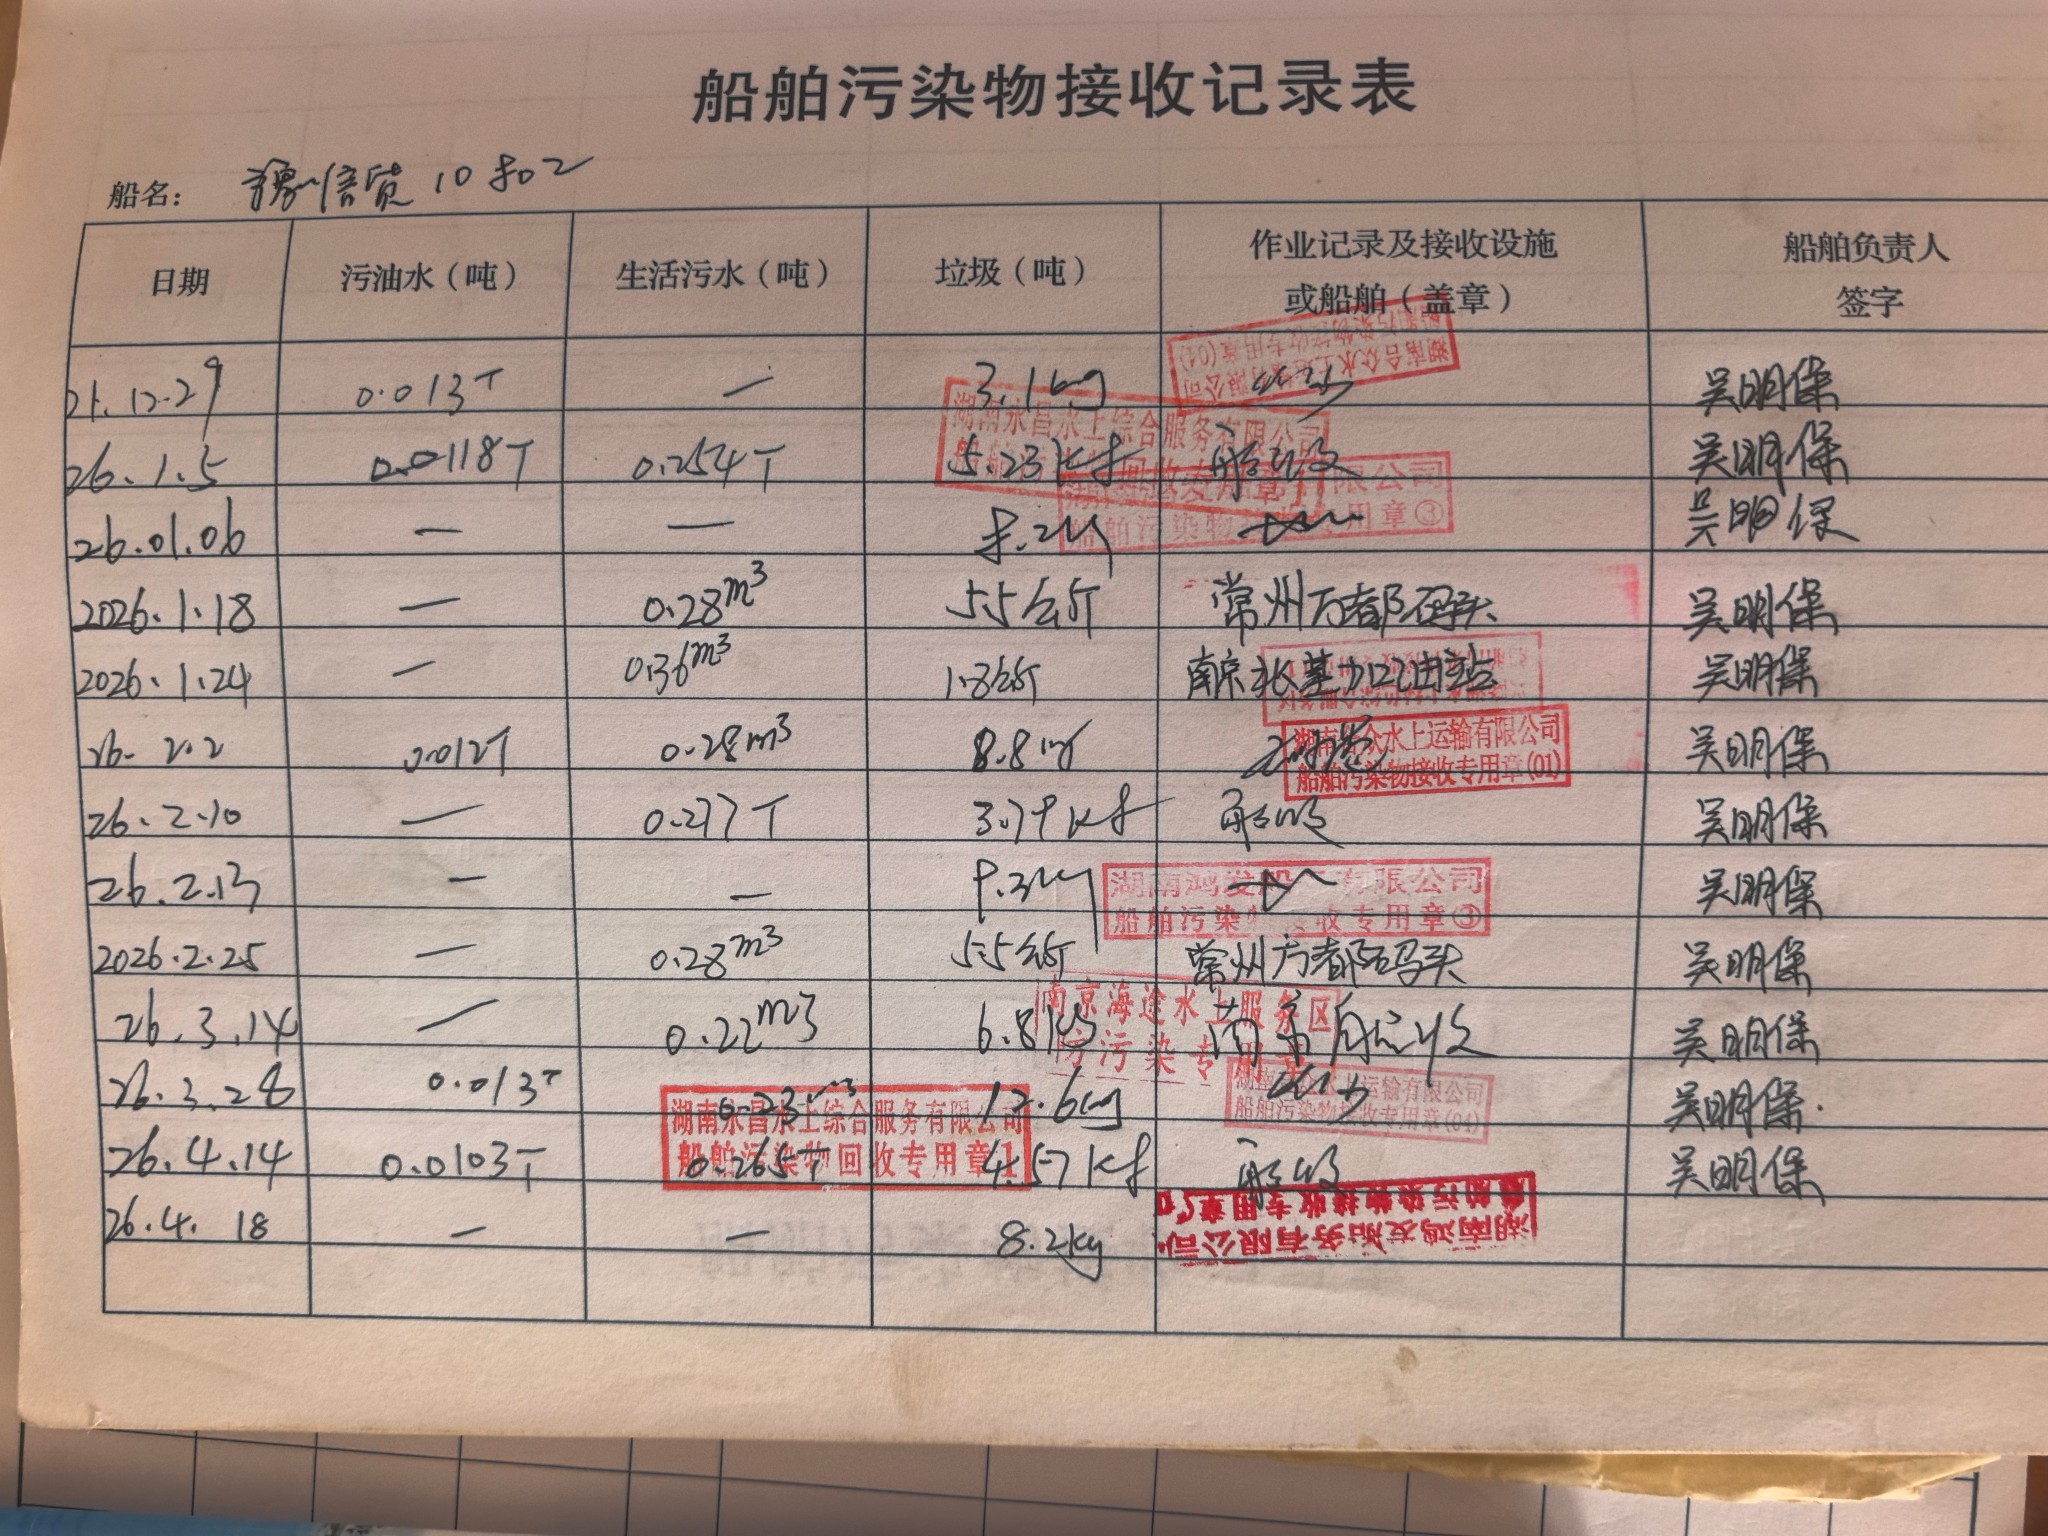 船舶污染物接收记录表
船名: 豫信货10802
日期 污油水（吨） 生活污水（吨） 垃圾（吨） 作业记录及接收设施或船舶（盖章） 船舶负责人签字
12.29 0.013T — 3.1kg 吴明保
湖南合众水上运输有限公司
船舶污染物接收专用章(04)
26.1.5 0.0118T 0.254T 5.23kg 船收 吴明保
湖南永昌水上综合服务有限公司
26.01.06 — — 吴明保
有限公司
船舶污染物 专用章③
2026.1.18 — 0.28m³ 5.5公斤 常州万都码头 吴明保
2026.1.24 — 0.36m³ 1.8公斤 南京 加油站 吴明保
26.2.2 0.012T 0.28m³ 8.8 吴明保
湖南合众水上运输有限公司
船舶污染物接收专用章(01)
26.2.10 — 0.277T 3.79kg 船收 吴明保
26.2.13 — — 9.2kg 吴明保
湖南鸿发船务有限公司
船舶污染物接收专用章③
2026.2.25 — 0.28m³ 5.5公斤 常州万都码头 吴明保
26.3.14 — 0.22m³ 6.8kg 吴明保
南京海途水上服务区
防污染专用章
26.3.28 0.013T 0.23m³ 12.6kg 吴明保
水上运输有限公司
船舶污染物接收专用章(04)
26.4.14 0.0103T 0.265T 4.57kg 船收 吴明保
湖南永昌水上综合服务有限公司
船舶污染物回收专用章1
26.4.18 — — 8.2kg
湖南鸿发船务有限公司
船舶污染物接收专用章